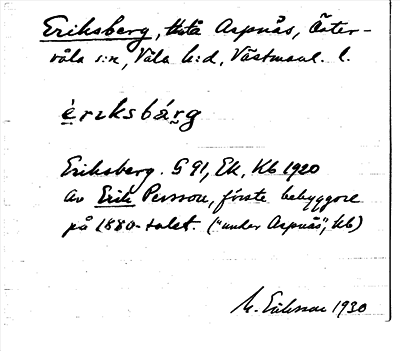 Eriksberg, Aspnäs, Öster-
våla s:n, Våla h:d, Västmanl. l.
èrıksbárg
Eriksberg. G 91, Ek, Kb 1920
Av Erik Persson, förste bebyggare
på 1880-talet. ("under Aspnäs", Kb)
M. Eriksson 1930